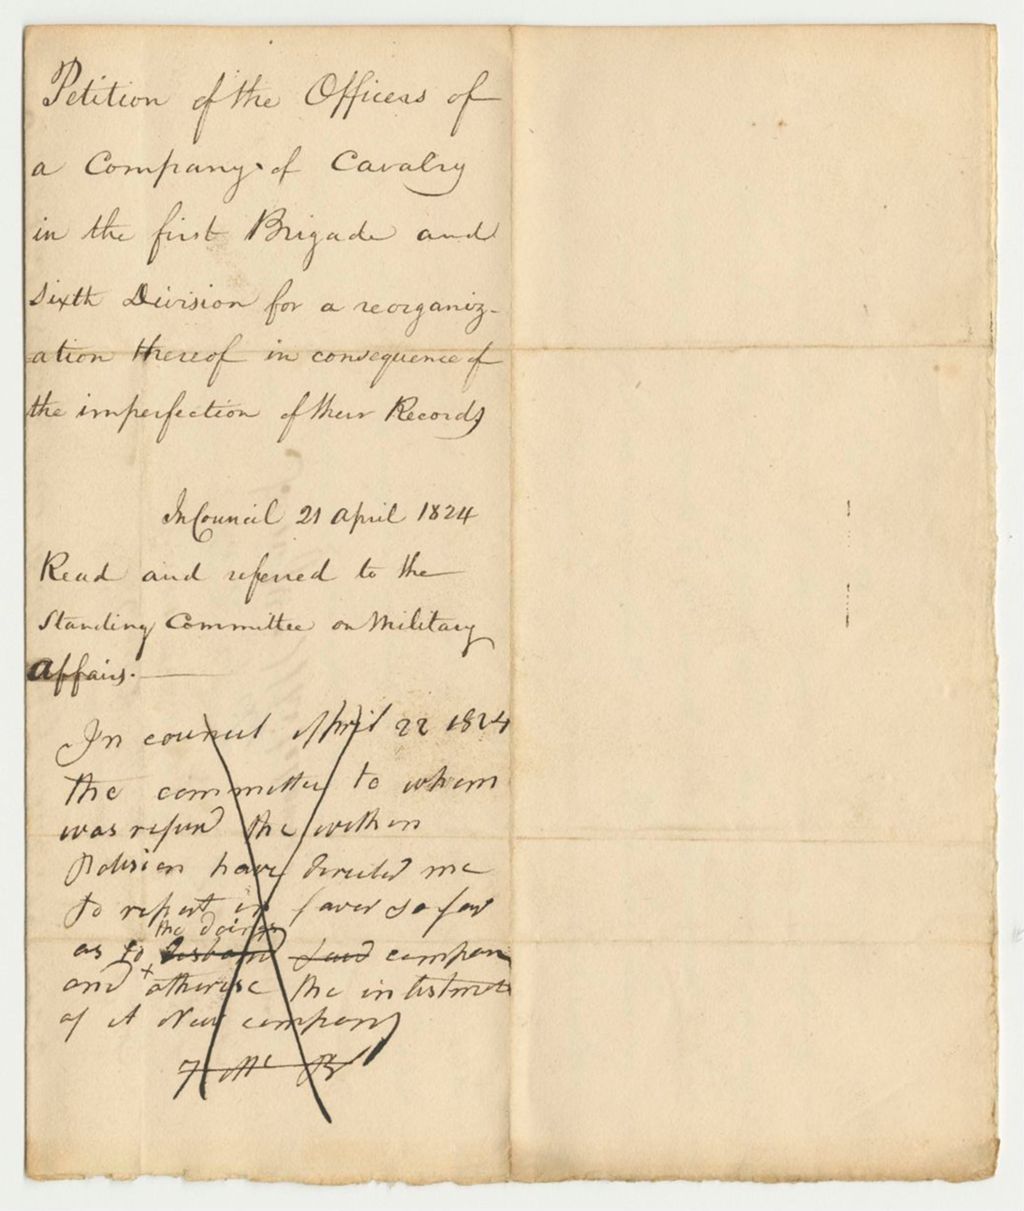 Petition of the Officers of
a Company of Cavalry
in the first Brigade and
Sixth Division for a reorganiz-
ation thereof in consequence of
the imperfection of their Records
In Council 21 April 1824
Read and referred to the
Standing Committee on Military
Affairs.
In council April 22 1824
the committee to whom
was referd the within
have directed me
to report in favor so far
the doings
as to company
and otherise the
of A New company